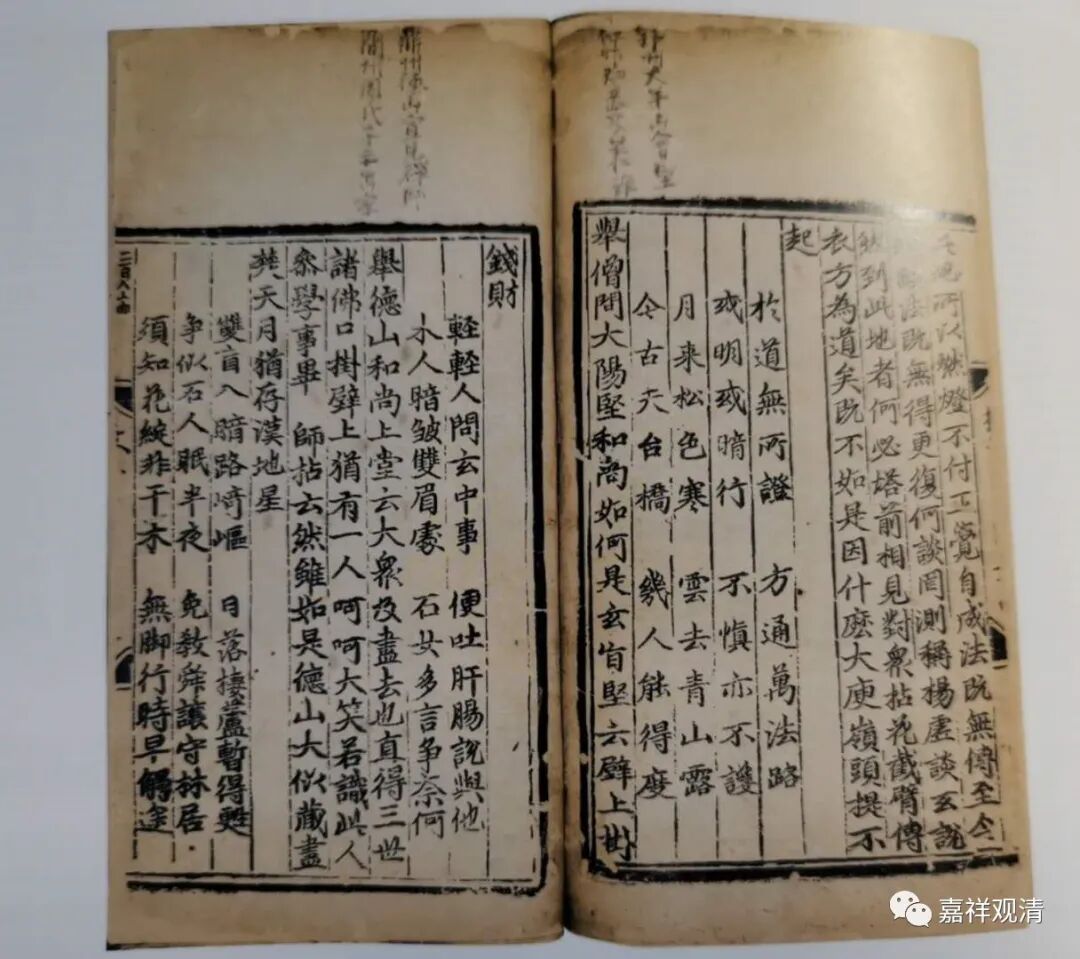 所以然燈不付正覺自成法既無傳至今
法既無得更復何談罔測稱楊虛談玄說
然到此地者何必塔前相見對衆拈花截臂傳
衣方為道矣既不如是因什麽大庾嶺頭提不
起
於道無所證　方通萬法路
或明或暗行　不慎亦不護
月来松色寒　雲去青山露
今古天台橋　幾人能得度
舉僧問大陽堅和尚如何是玄旨堅云壁上掛
錢財
輕輕人問玄中事　便吐肝腸說與他
木人暗皱雙眉處　石女多言争奈何
舉德山和尚上堂云大衆及盡去也直得三世
諸佛口掛壁上猶有一人呵呵大笑若識此人
叅學事畢　師拈云然雖如是德山大似藏盡
楚天月猶存漢地星
雙盲入暗路崎嶇　日落棲蘆暫得甦
争似石人眠半夜　免教舜讓守林居
須知花綻非干木　無脚行時早觸途
鼎州德山宣鑒禪師
嘉祥观清